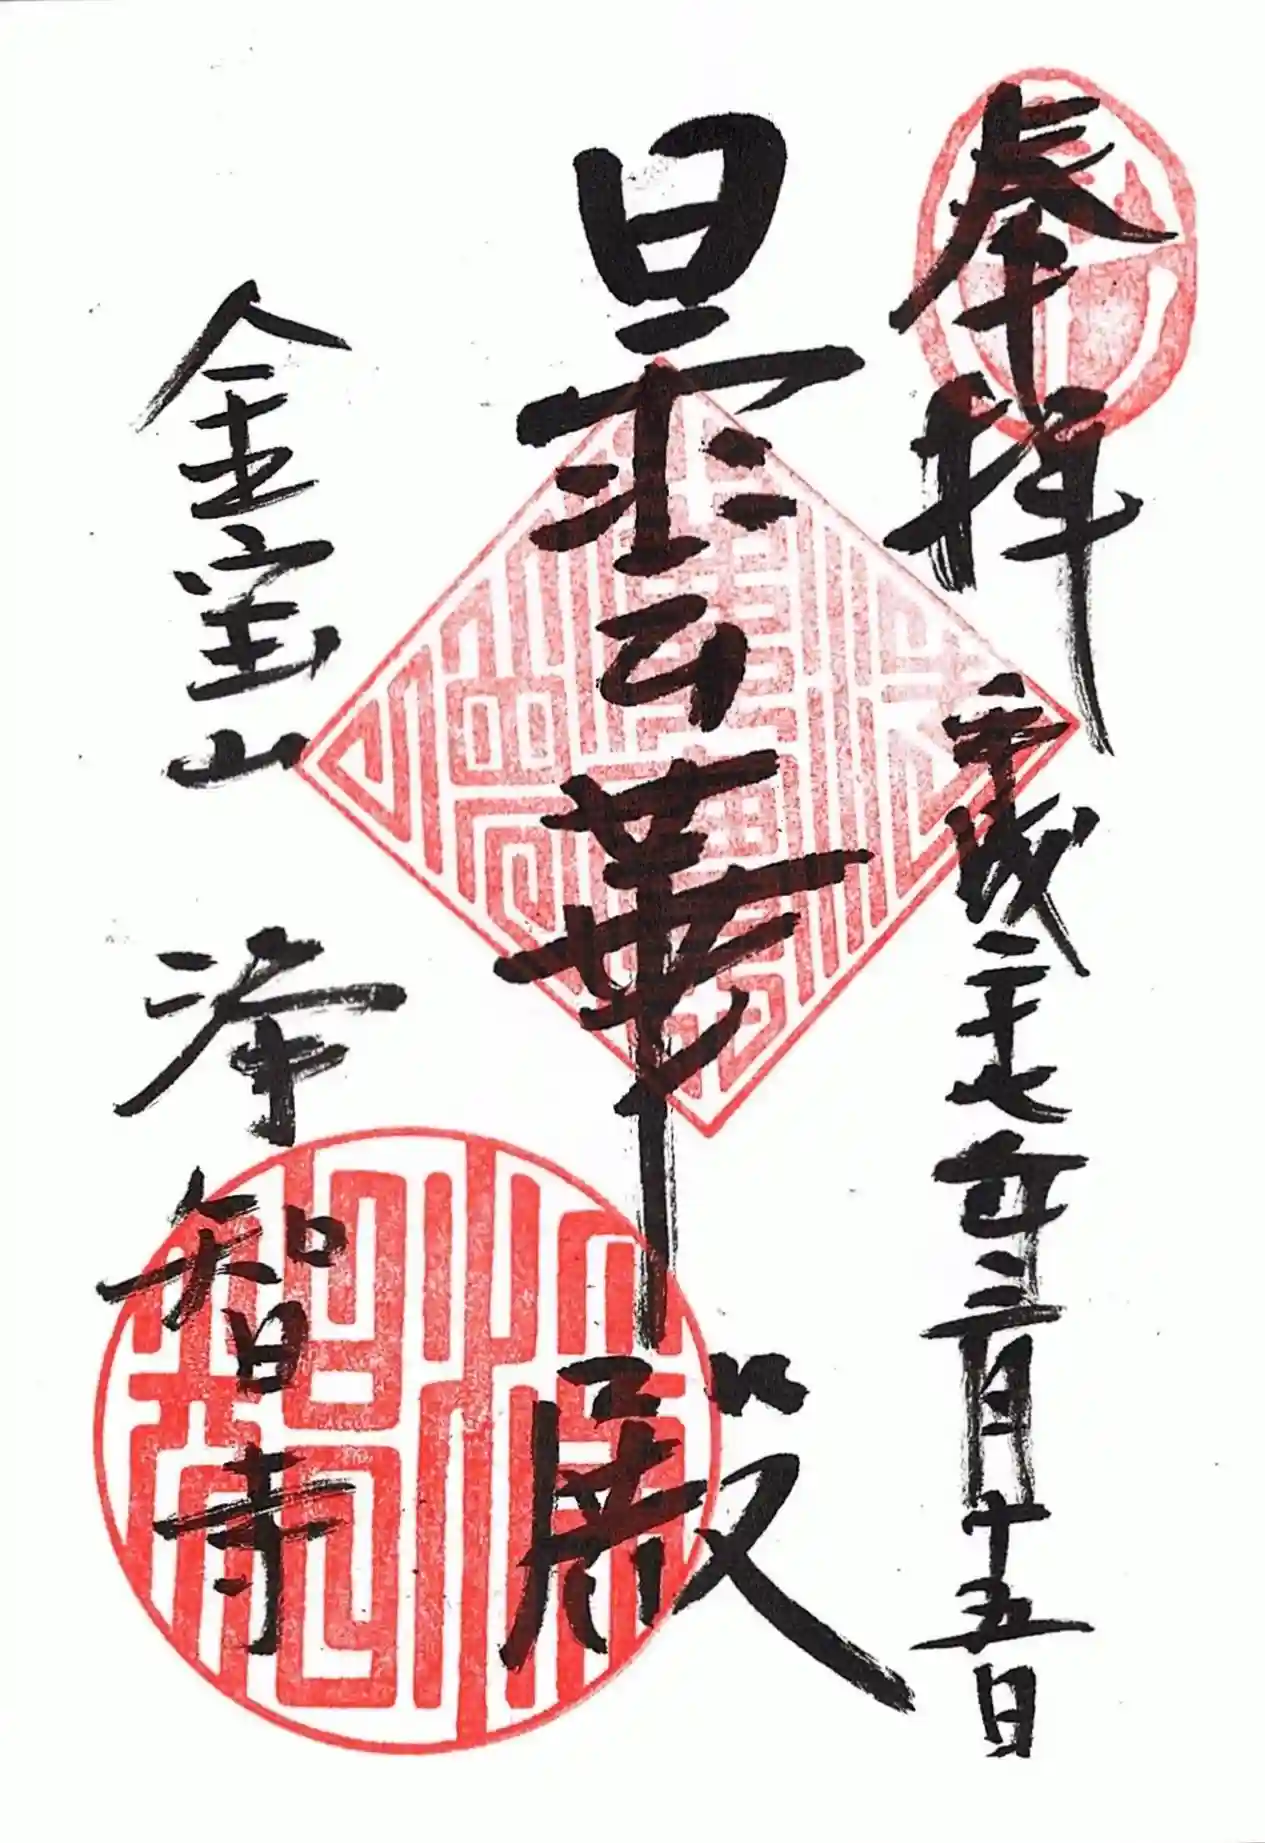 奉拝
平成二十七年三月十五日
曇華殿
金宝山 浄智寺